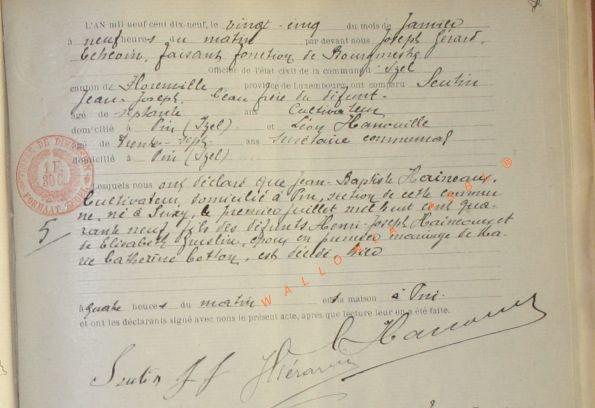 L'AN mil neuf cent dix-neuf, le vingt-cinq du mois de Janvier
à neuf heures du matin par devant nous Joseph Gérard,
Echevin, faisant fonction de Bourgmestre
Officier de l'état civil de la commune d'Izel
canton de Florenville province de Luxembourg, ont comparu Seutin
Jean-Joseph, beau-frère du défunt
âgé de septante ans Cultivateur
domicilié à Pin (Izel) et Léon Hanouille
âgé de trente-sept ans secrétaire communal
domicilié à Pin (Izel)
Lesquels nous ont déclaré que Jean-Baptiste Haineaux,
Cultivateur, domicilié à Pin, section de cette commu
ne, né à Suxy, le premier juillet mil huit cent qua
rante neuf, fils des défunts Henri-Joseph Haineaux et
de Elisabeth, époux en premier mariage de Ma
rie Catherine, est décédé hier
à quatre heures du matin en sa maison à Pin.
et ont les déclarants signé avec nous le présent acte, après que lecture leur en a été faite.
5
WALLONIE
Seutin J J Gérard